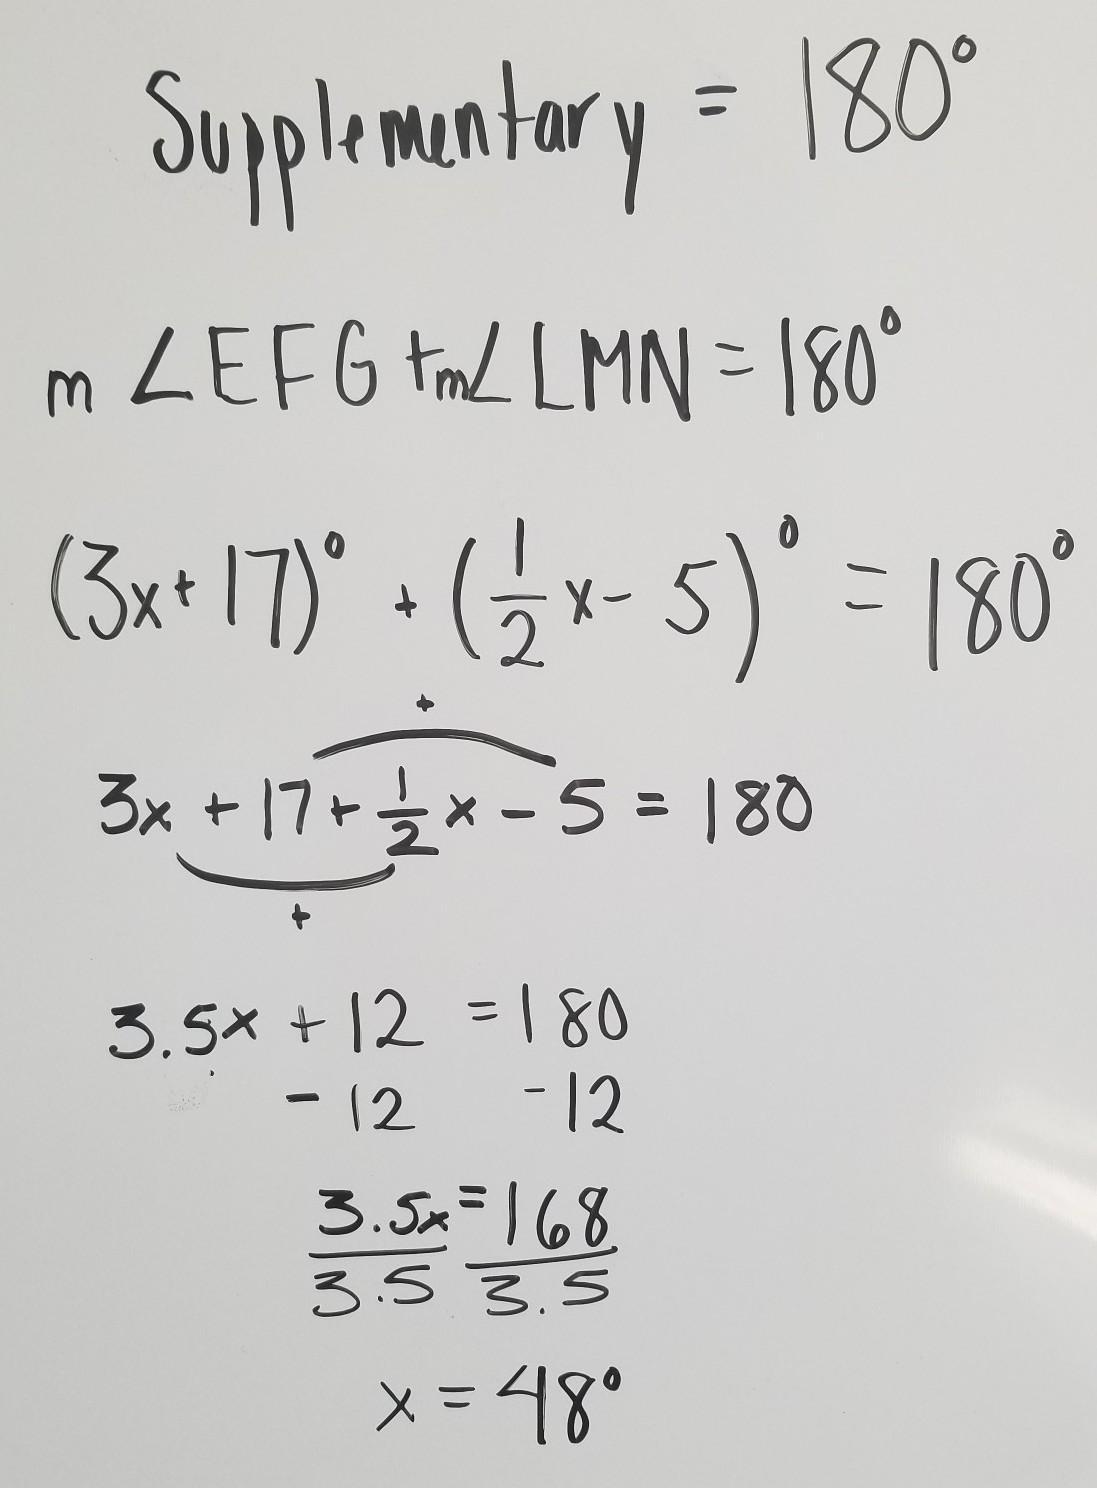 Supplementary = 180°
m ∠EFG + m∠LMN = 180°
(3x + 17)° + (1/2 x - 5)° = 180°
+
3x + 17 + 1/2 x - 5 = 180
+
3.5x + 12 = 180
- 12 - 12
3.5x = 168
3.5 3.5
x = 48°